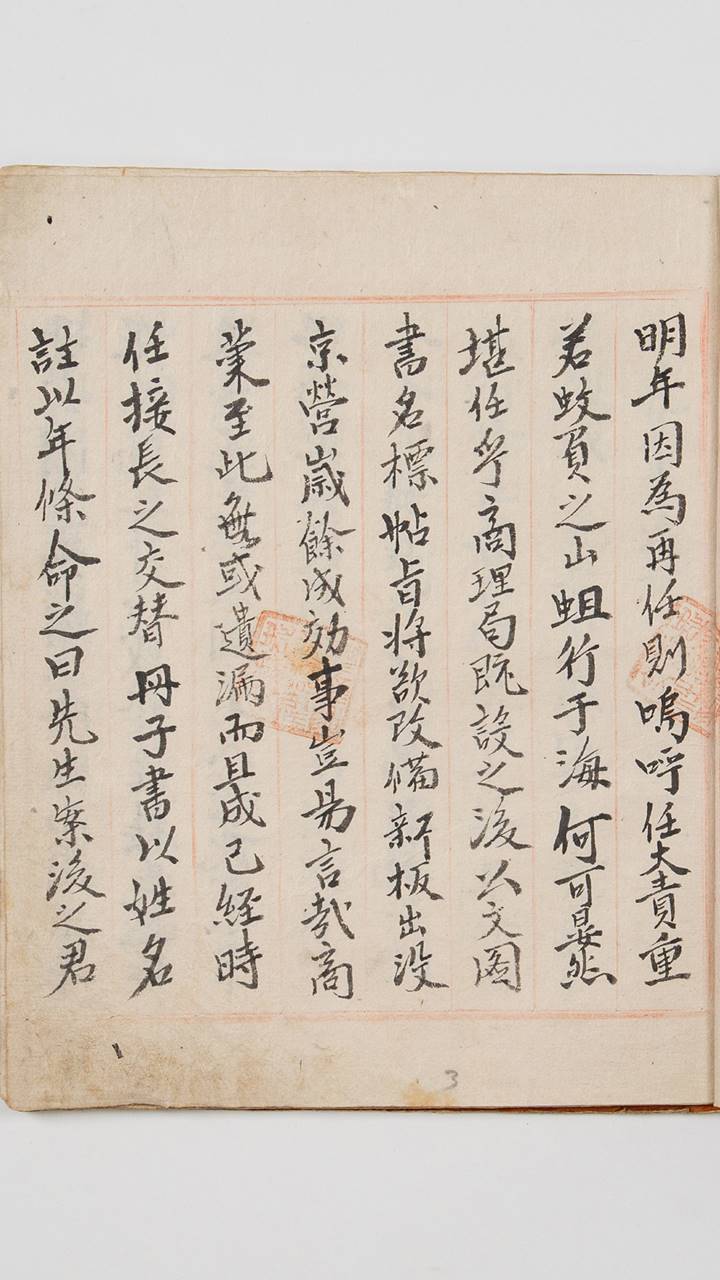 明年因為再任則嗚呼任大責重
若蚊負之山蛆行于海何可曩然
堪任乎商理局既設之後公文圖
書名標帖旨將欲改備新板出沒
京營歲餘成効事豈易言哉商
業至此無或遺漏而且成已經時
任接長之交替冊子書以姓名
註以年條命之曰先生案後之君
3